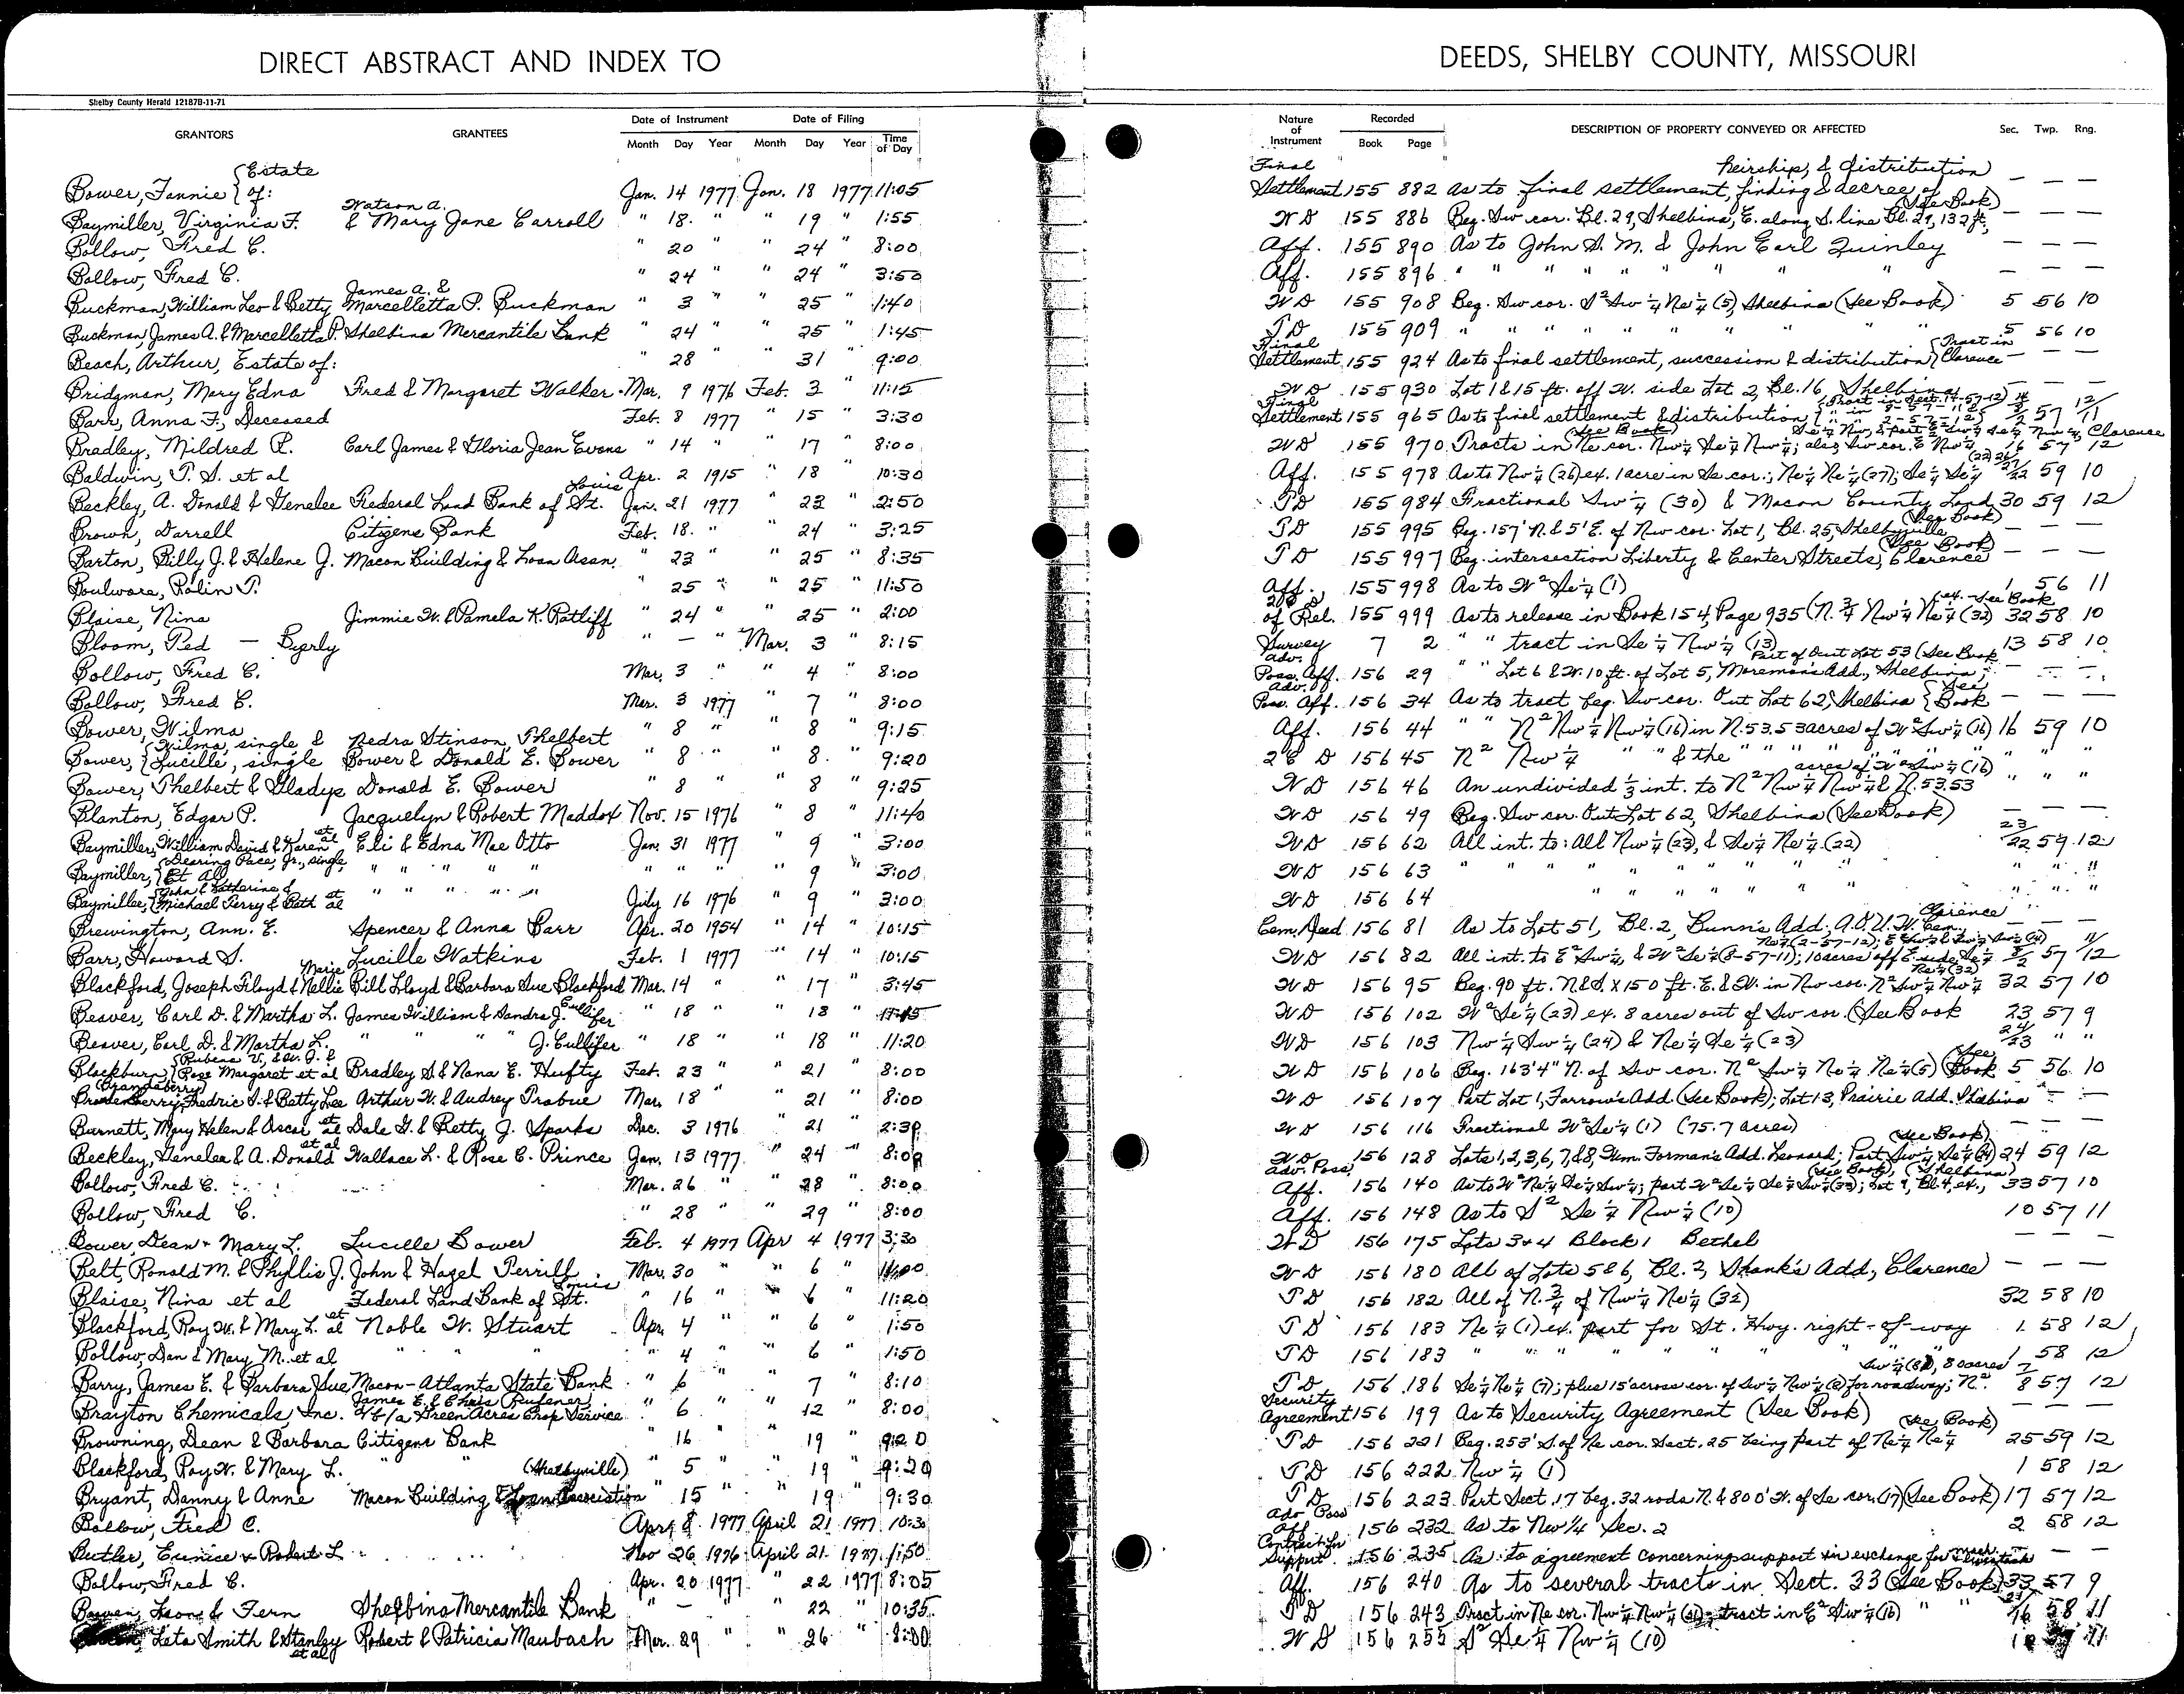 DIRECT ABSTRACT AND INDEX TO
DEEDS, SHELBY COUNTY, MISSOURI
Shelby County Herald 12187B-11-71
GRANTORS GRANTEES Date of Instrument Month Day Year Date of Filing Month Day Year Time of Day
Nature of Instrument Recorded Book Page DESCRIPTION OF PROPERTY CONVEYED OR AFFECTED Sec. Twp. Rng.
Bower, Fannie { Estate of: Jan. 14 1977 Jan. 18 1977 11:05
Baymiller, Virginia F. Watson A. & Mary Jane Carroll " 18. " " 19 " 1:55
Bollow, Fred C. " 20 " " 24 " 8:00
Bollow, Fred C. " 24 " " 24 " 3:50
Buckman, William Leo & Betty James A. & Marcelletta P. Buckman " 3 " " 25 " 1:40
Buckman, James A. & Marcelletta P. Shelbina Mercantile Bank " 24 " " 25 " 1:45
Beach, Arthur, Estate of: " 28 " " 31 " 9:00
Bridgman, Mary Edna Fred & Margaret Walker Mar. 9 1976 Feb. 3 " 11:15
Barr, Anna F., Deceased Feb. 8 1977 " 15 " 3:30
Bradley, Mildred R. Carl James & Gloria Jean Evans " 14 " " 17 " 8:00
Baldwin, T. S. et al Apr. 2 1915 " 18 " 10:30
Beckley, A. Donald & Genelee Federal Land Bank of St. Louis Jan. 21 1977 " 23 " 2:50
Brown, Darrell Citizens Bank Feb. 18. " " 24 " 3:25
Barton, Billy J. & Helene J. Macon Building & Loan Assn. " 23 " " 25 " 8:35
Boulware, Rolin T. " 25 " " 25 " 11:50
Blaise, Nina Jimmie W. & Pamela K. Ratliff " 24 " " 25 " 2:00
Bloom, Ted — Byerly " — " Mar. 3 " 8:15
Bollow, Fred C. Mar. 3 " " 4 " 8:00
Bollow, Fred C. Mar. 3 1977 " 7 " 8:00
Bower, Wilma " 8 " " 8 " 9:15
Bower, { Wilma, single, & Lucille, single Nedra Stinson, Thelbert Bower & Donald E. Bower " 8 " " 8. " 9:20
Bower, Thelbert & Gladys Donald E. Bower " 8 " 8 " 9:25
Blanton, Edgar P. Jacquelyn & Robert Maddox Nov. 15 1976 " 8 " 11:40
Baymiller, William David & Karen et al Eli & Edna Mae Otto Jan. 31 1977 " 9 " 3:00
Baymiller, { Dearing Pace, Jr., single, Et Al " " " " " " " " " 9 " 3:00
Baymiller, { John & Catherine & Michael Terry & Beth et al " " " " " July 16 1976 " 9 " 3:00
Brewington, Ann. E. Spencer & Anna Barr Apr. 20 1954 " 14 " 10:15
Barr, Howard S. Lucille Watkins Feb. 1 1977 " 14 " 10:15
Blackford, Joseph Floyd & Nellie Marie Bill Lloyd & Barbara Sue Blackford Mar. 14 " " 17 " 3:45
Beaver, Carl D. & Martha L. James William & Sandra J. Gullifer " 18 " " 18 " 11:15
Beaver, Carl D. & Martha L. " " " J. Gullifer " 18 " " 18 " 11:20
Blackburn, { Rubena V., & W. J. & Rose Margaret et al Bradley S. & Nana E. Hufty Feb. 23 " " 21 " 8:00
(Brandeberry) Fredric S. & Betty Lee Arthur W. & Audrey Prabue Mar. 18 " " 21 " 8:00
Burnett, Mary Helen & Oscar et al Dale G. & Betty J. Sparks Dec. 3 1976 " 21 " 2:30
Beckley, Genelee & A. Donald et al Wallace L. & Rose C. Prince Jan. 13 1977. " 24 " 8:00
Bollow, Fred C. Mar. 26 " " 28 " 8:00
Bollow, Fred C. " 28 " " 29 " 8:00
Bower, Dean + Mary L. Lucille Bower Feb. 4 1977 Apr 4 1977 3:30
Belt, Ronald M. & Phyllis J. John & Hazel Terrill Mar. 30 " " 6 " 11:00
Blaise, Nina et al Federal Land Bank of St. Louis " 16 " " 6 " 11:20
Blackford, Roy W. & Mary L. et al Noble W. Stuart Apr. 4 " " 6 " 1:50
Bollow, Dan & Mary M. et al " " " " 4 " " 6 " 1:50
Barry, James E. & Barbara Sue Macon-Atlanta State Bank " 6 " " 7 " 8:10
Brayton Chemicals, Inc. James E. & Chris Peufener, d/b/a Green Acres Crop Service " 6 " " 12 " 8:00
Browning, Dean & Barbara Citizens Bank " 16 " " 19 " 9:20
Blackford, Roy W. & Mary L. " " (Shelbyville) " 5 " " 19 " 9:20
Bryant, Danny & Anne Macon Building & Loan Association " 15 " " 19 " 9:30
Bollow, Fred C. Apr. 8 1977 April 21 1977 10:30
Butler, Eunice + Robert L. Nov 26 1976 April 21 1977 1:50
Bollow, Fred C. Apr. 20 1977 " 22 1977 8:05
Leon & Fern Shelbina Mercantile Bank " — " 22 " 10:35
Leta Smith & Stanley et al Robert & Patricia Maubach Mar. 29 " " 26 " 8:00
Final Settlement 155 882 As to final settlement, finding & decree of heirship, & distribution — — —
WD 155 886 Beg. Sw cor. Bl. 29, Shelbina, E. along S. line Bl. 29, 132 ft, (See Book) — — —
Aff. 155 890 As to John S. M. & John Earl Quinley — — —
Aff. 155 896 " " " " " " " " — — —
WD 155 908 Beg. Sw cor. S² Sw ¼ Ne ¼ (5), Shelbina (See Book) 5 56 10
TD 155 909 " " " " " " " " " " 5 56 10
Final Settlement 155 924 As to final settlement, succession & distribution { Tract in Clarence — — —
WD 155 930 Lot 1 & 15 ft. off W. side Lot 2, Bl. 16 Shelbina — — —
Final Settlement 155 965 As to final settlement & distribution { Tract in Sect. 14-57-12)
WD 155 970 Tracts in Ne cor. Nw ¼ Se ¼ Nw ¼; also Sw cor. E² Nw ¼ (See Book) 16 57 12
Aff. 155 978 As to Nw ¼ (26) ex. 1 acre in Se cor.; Ne ¼ Ne ¼ (27); Se ¼ Se ¼ (22) 59 10
TD 155 984 Fractional Sw ¼ (30) & Macon County Land 30 59 12
TD 155 995 Beg. 157' N. & 5' E. of Nw cor. Lot 1, Bl. 25, Shelbyville (See Book) — — —
TD 155 997 Beg. intersection Liberty & Center Streets, Clarence (See Book) — — —
Aff. 155 998 As to W² Se ¼ (1) 1 56 11
of Rel. 155 999 As to release in Book 154, Page 935 (N. ¾ Nw ¼ Ne ¼ (32) ex.-See Book 32 58 10
Survey 7 2 " " tract in Se ¼ Nw ¼ (13) 13 58 10
Adv. Poss. Aff. 156 29 " " Lot 6 & W. 10 ft. of Lot 5, Moreman's Add., Shelbina; Part of Out Lot 53 (See Book — — —
Adv. Poss. Aff. 156 34 As to tract beg. Sw cor. Out Lot 62, Shelbina { See Book — — —
Aff. 156 44 " " N² Nw ¼ Nw ¼ (16) in N. 53.53 acres of W² Sw ¼ (16) 16 59 10
2 C D 156 45 N² Nw ¼ " " & the " " " " " " " " "
WD 156 46 An undivided ⅓ int. to N² Nw ¼ Nw ¼ & N. 53.53 acres of W² Sw ¼ (16) " " "
WD 156 49 Beg. Sw cor. Out Lot 62, Shelbina (See Book) — — —
WD 156 62 All int. to: All Nw ¼ (23), & Se ¼ Ne ¼ (22) 23/22 59 12
WD 156 63 " " " " " " " " " " "
WD 156 64 " " " " " " " " "
Cem. Deed 156 81 As to Lot 51, Bl. 2, Bunn's Add., A.O.U.W. Cem. Clarence
WD 156 82 All int. to E² Sw ¼, & W² Se ¼ (8-57-11); 10 acres off E. side Se ¼ Ne ¼ (2-57-12);
WD 156 95 Beg. 90 ft. N.&S. x 150 ft. E.&W. in Nw cor. N² Sw ¼ Nw ¼ Ne ¼ (32) 32 57 10
WD 156 102 W² Se ¼ (23) ex. 8 acres out of Sw cor. (See Book 23 57 9
WD 156 103 Nw ¼ Sw ¼ (24) & Ne ¼ Se ¼ (23) 24/23 " "
WD 156 106 Beg. 163'4" N. of Sw cor. N² Sw ¼ Ne ¼ Ne ¼ (5) (See Book 5 56 10
WD 156 107 Part Lot 1, Farrow's Add. (See Book); Lot 13, Prairie Add. Shelbina — — —
WD 156 116 Fractional W² Se ¼ (1) (75.7 acres)
WD 156 128 Lots 1, 2, 3, 6, 7, & 8, Wm. Forman's Add. Leonard; Part Sw ¼ Se ¼ (24) (See Book) 24 59 12
Adv. Poss. Aff. 156 140 As to W² Ne ¼ Se ¼ Sw ¼; part W² Se ¼ Se ¼ Sw ¼ (33); Lot 9, Bl. 4, ex., (See Book), (Shelbina) 33 57 10
Aff. 156 148 As to S² Se ¼ Nw ¼ (10) 10 57 11
WD 156 175 Lots 3+4 Block 1 Bethel — — —
WD 156 180 All of Lots 5 & 6, Bl. 2, Shank's Add., Clarence — — —
TD 156 182 All of N. ¾ of Nw ¼ Ne ¼ (32) 32 58 10
TD 156 183 Ne ¼ (1) ex. part for St. Hwy. right-of-way 1 58 12
TD 156 183 " " " " " " " " 1 58 12
TD 156 186 Se ¼ Ne ¼ (7); plus 15' across cor. of Sw ¼ Nw ¼ (8) for roadway; N² Sw ¼ (8), 80 acres 7/8 57 12
Security Agreement 156 199 As to Security Agreement (See Book) — — —
TD 156 221 Beg. 253' S. of Ne cor. Sect. 25 being part of Ne ¼ Ne ¼ (See Book) 25 59 12
TD 156 222 Nw ¼ (1) 1 58 12
TD 156 223 Part Sect. 17 beg. 32 rods N. & 800' W. of Se cor. (17) (See Book) 17 57 12
Adv Poss Aff 156 232 As to Nw 1/4 Sec. 2 2 58 12
Contract for Support 156 235 As to agreement concerning support in exchange for — —
Aff. 156 240 As to several tracts in Sect. 33 (See Book) 33 57 9
TD 156 243 Tract in Ne cor. Nw ¼ Nw ¼ (21); tract in E² Sw ¼ (16) " " 16 58 11
WD 156 255 S² Se ¼ Nw ¼ (10)